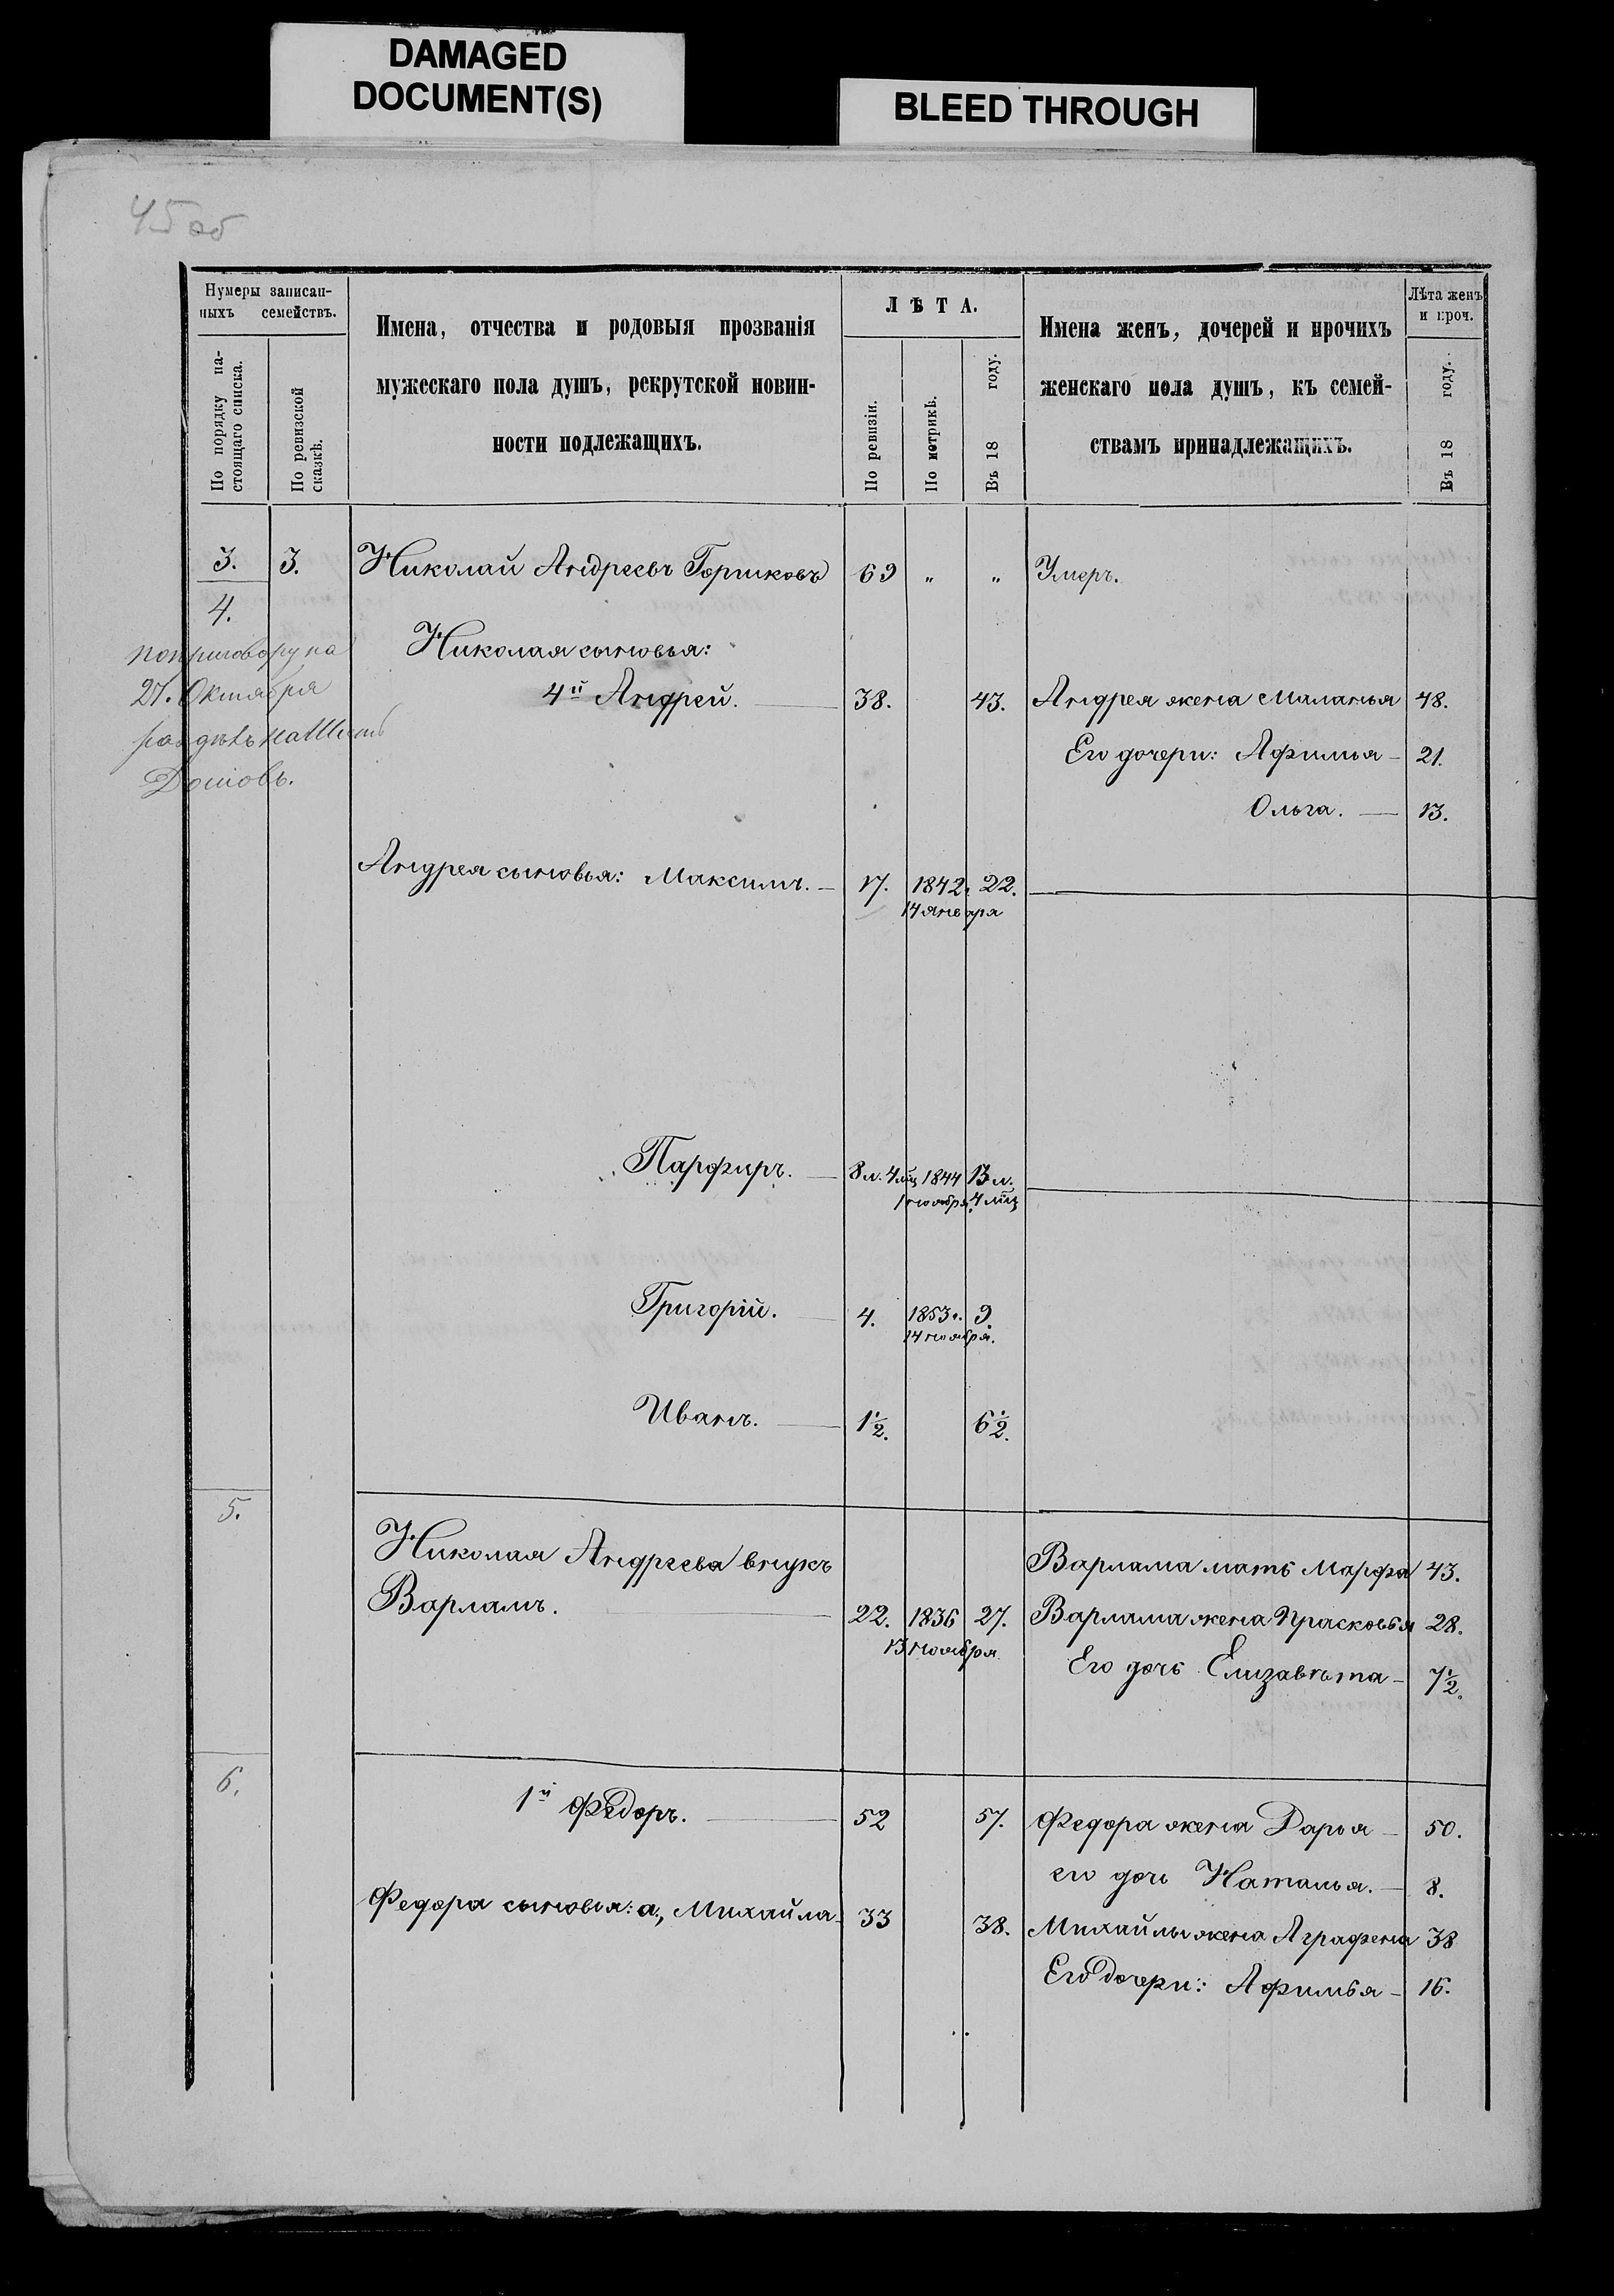 DAMAGED
DOCUMENT(S)
BLEED THROUGH
45 об
Нумеры записан-
ныхъ семействъ.
По порядку на-
стоящаго списка.
По ревизской
сказкѣ.
Имена, отчества и родовыя прозванія
мужескаго пола душъ, рекрутской повин-
ности подлежащихъ.
ЛѢТА.
По ревизіи.
По метрикѣ.
Въ 18 году.
Имена женъ, дочерей и прочихъ
женскаго пола душъ, къ семей-
ствамъ принадлежащихъ.
Лѣта женъ
и проч.
Въ 18 году.
3. 3. Николай Андреевъ Горшковъ 69 " " Умеръ.
4.
по приговору на
27. Октября
раздѣлъ на Шесть
Домовъ.
Николая сыновья:
4й Андрей. 38. 43. Андрея жена Маланья 48.
Его дочери: Афимья 21.
Ольга. 13.
Андрея сыновья: Максимъ. 17. 1842. 22.
14 января
Парфиръ. 8 л. 4 мц 1844 13 л.
1 ноября. 4 мц
Григорій. 4. 1853 г. 9.
14 ноября.
Иванъ. 1½. 6½.
5.
Николая Андреева внукъ Варлама мать Марфа 43.
Варламъ. 22. 1836 27. Варлама жена Прасковья 28.
13 ноября
Его дочь Елизавѣта 7½.
6.
1й Федоръ. 52 57. Федора жена Дарья 50.
его дочь Наталья. 8.
Федора сыновья: а, Михайла 33 38. Михайлы жена Аграфена 38
Его дочери: Афимья 16.